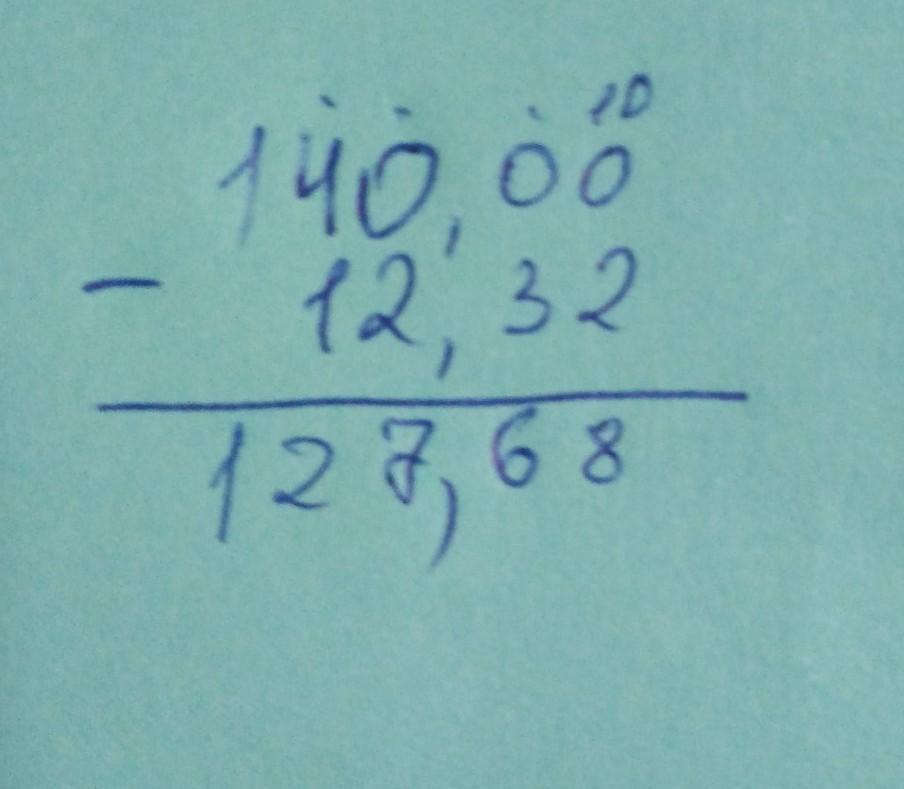 10
140,00
- 12,32
127,68